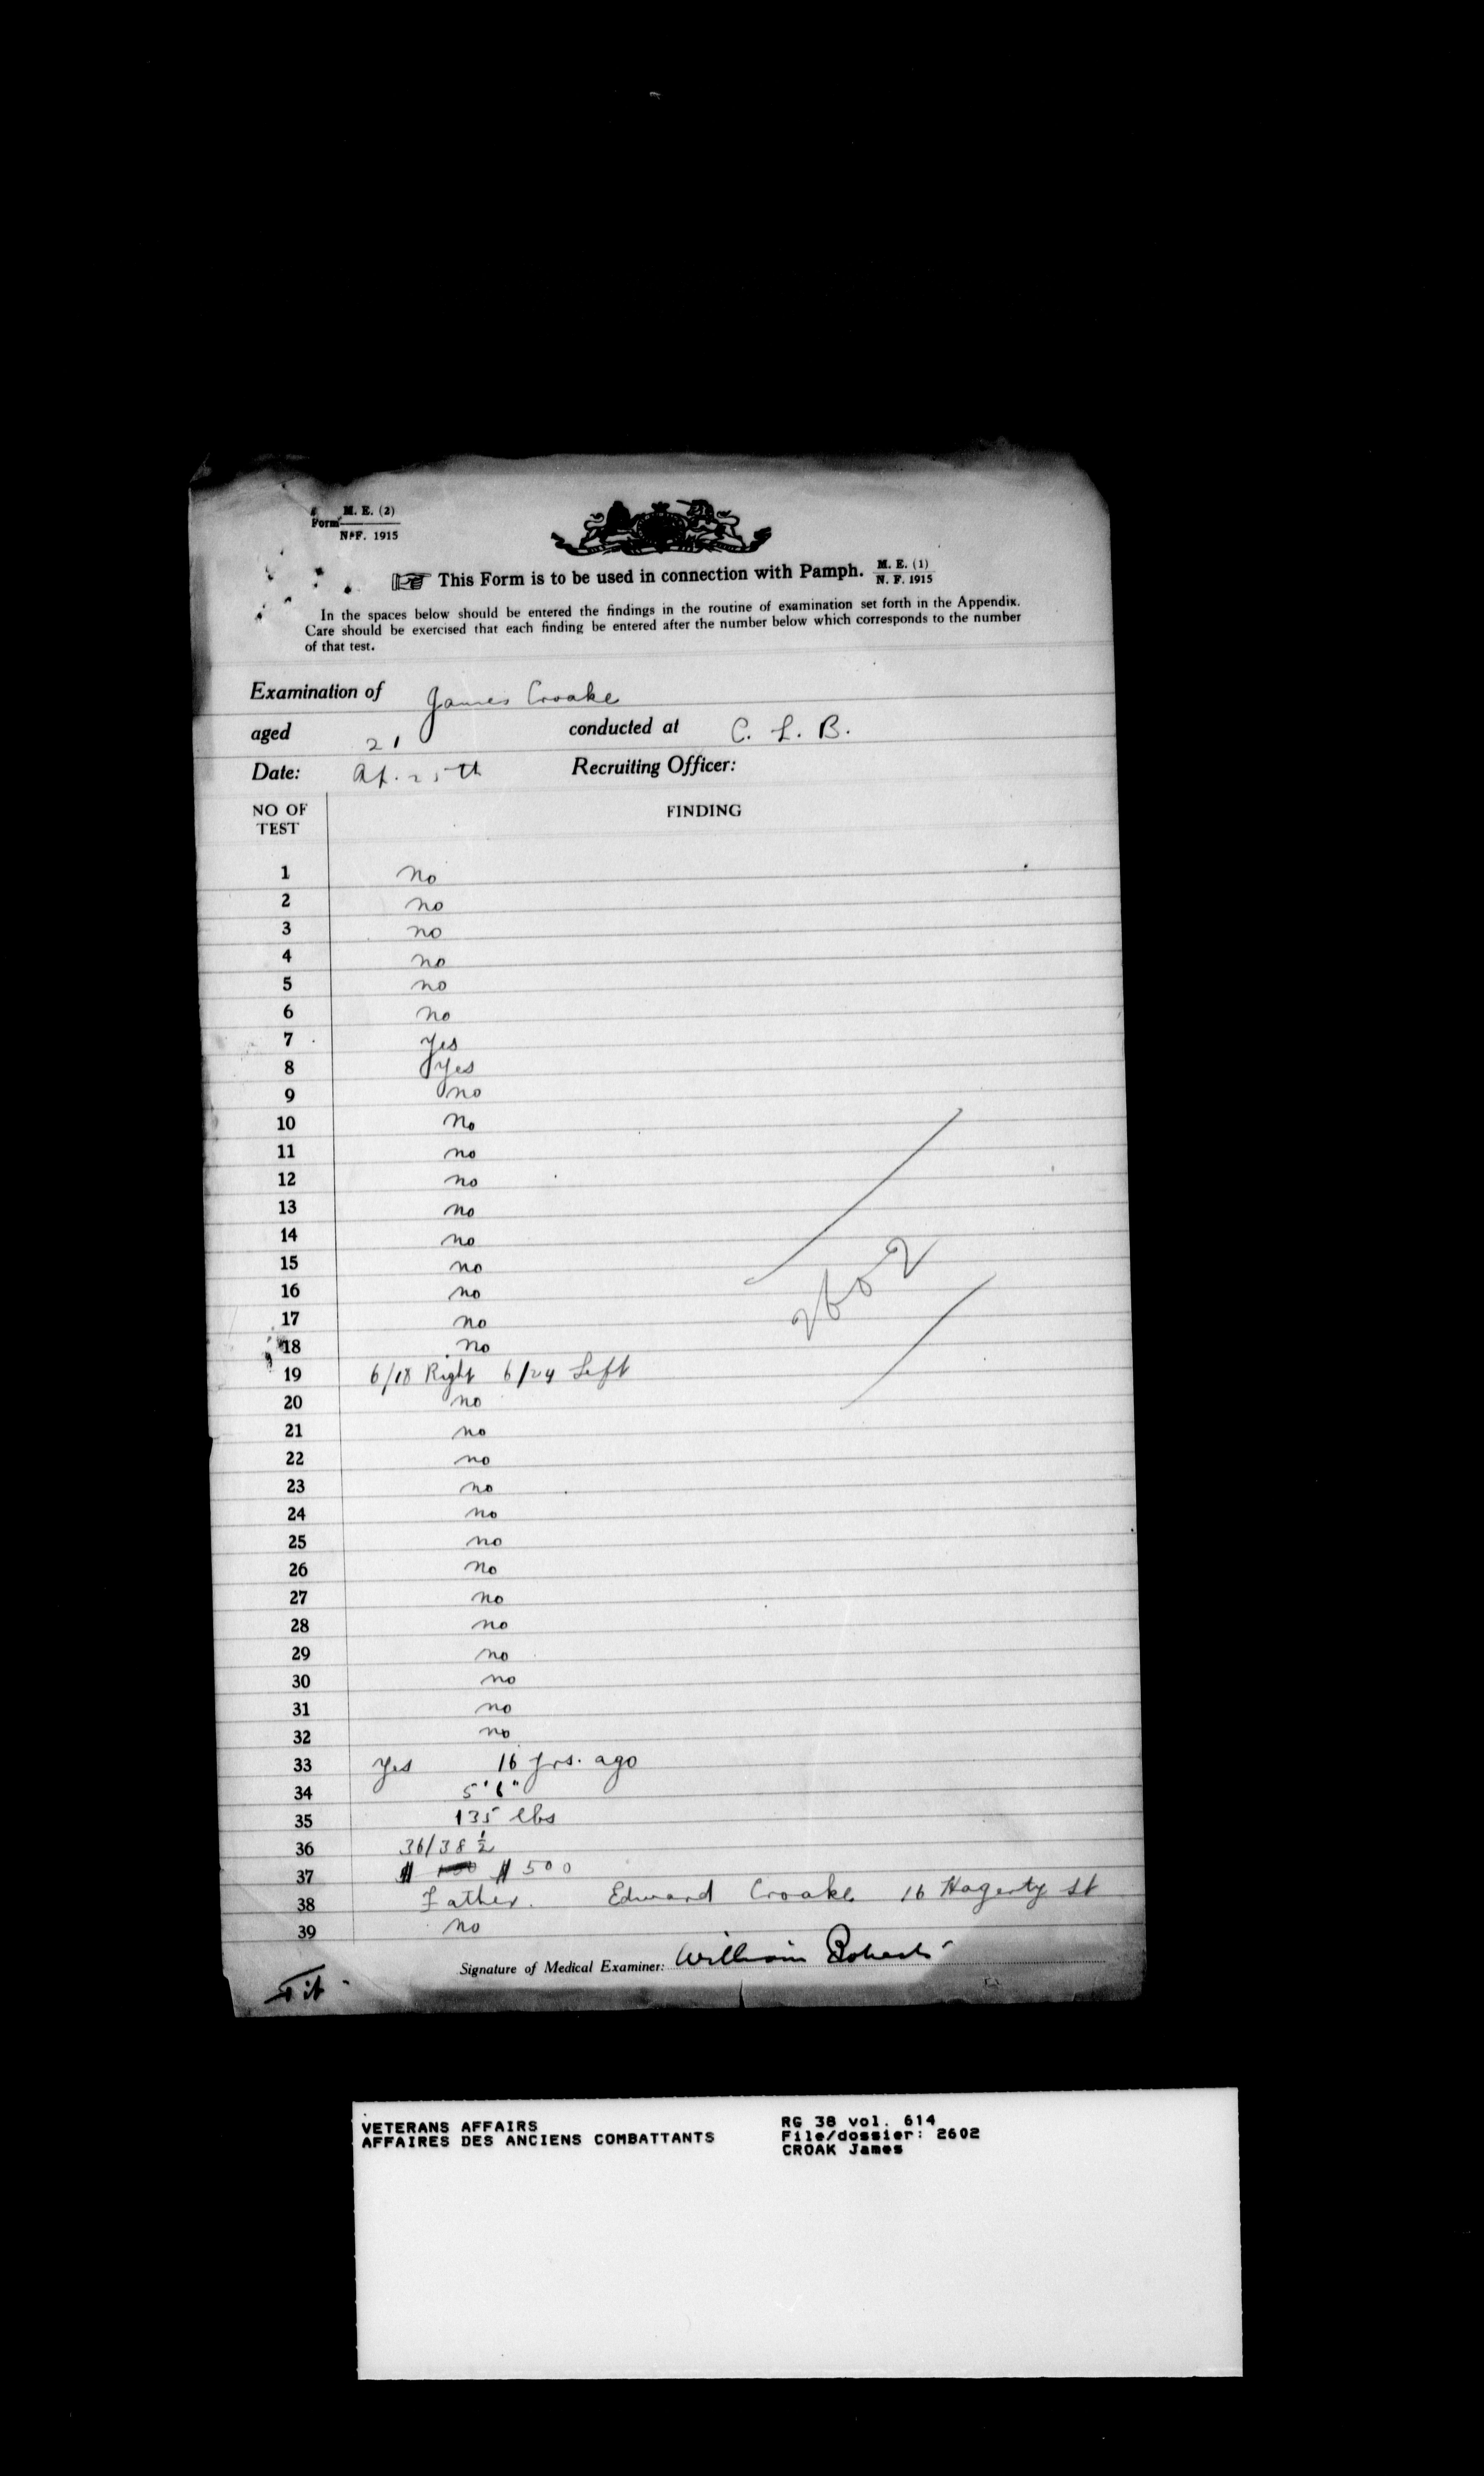 Form M. E. (2)
N. F. 1915
This Form is to be used in connection with Pamph. M. E. (1)
N. F. 1915
In the spaces below should be entered the findings in the routine of examination set forth in the Appendix.
Care should be exercised that each finding be entered after the number below which corresponds to the number
of that test.
Examination of James Croake
aged 21 conducted at C. L. B.
Date: Ap. 25th Recruiting Officer:
NO OF TEST FINDING
1 no
2 no
3 no
4 no
5 no
6 no
7 yes
8 yes
9 no
10 no
11 no
12 no
13 no
14 no
15 no
16 no
17 no
18 no
19 6/18 Right 6/24 Left
20 no
21 no
22 no
23 no
24 no
25 no
26 no
27 no
28 no
29 no
30 no
31 no
32 no
33 yes 16 yrs. ago
34 5' 6"
35 135 lbs
36 36/38 ½
37 $ $ 500
38 Father. Edward Croake 16 Hagerty St
39 no
2602
Signature of Medical Examiner: William Roberts
Fit
VETERANS AFFAIRS
AFFAIRES DES ANCIENS COMBATTANTS
RG 38 vol. 614
File/dossier: 2602
CROAK James